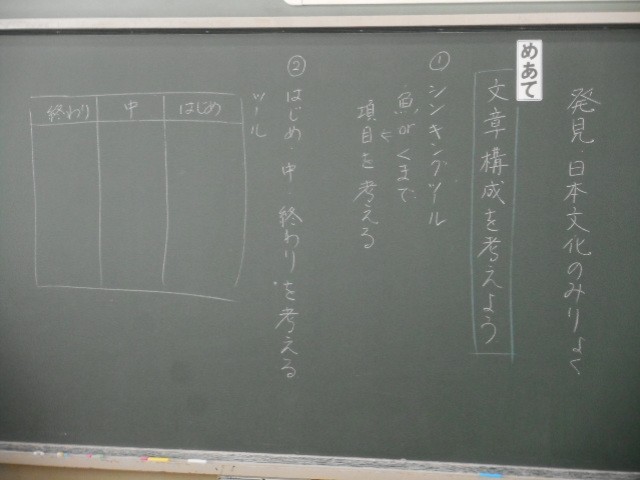 発見・日本文化のみりょく
めあて
文章構成を考えよう
① シンキングツール
魚orくまで
項目を考える
② はじめ・中 終わりを考える
ツール
はじめ
中
終わり